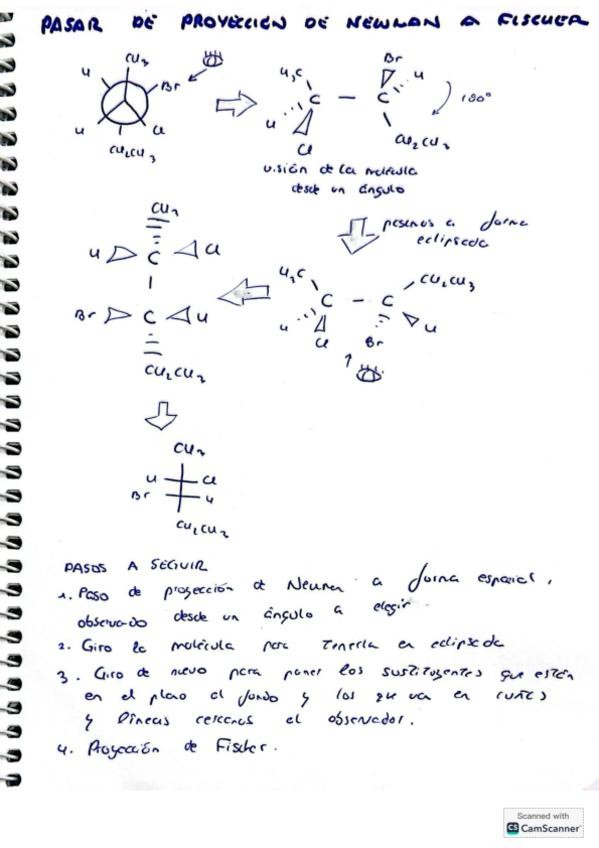 PASAR DE PROYECCIÓN DE NEWMAN A FISCHER
CH3
H
Br
H
Cl
CH2CH3
H3C
C — C
H
Cl
Br
H
CH2CH3
180°
visión de la molécula
desde un ángulo
pasemos a forma
eclipsada
H3C
C — C
H
Cl
CH2CH3
H
Br
CH3
H C Cl
Br C H
CH2CH3
CH3
H Cl
Br H
CH2CH3
PASOS A SEGUIR
1. Paso de proyección de Newman a forma espacial,
observado desde un ángulo a elegir
2. Giro la molécula para tenerla en eclipsada
3. Giro de nuevo para poner los sustituyentes que están
en el plano al fondo y los que van en cuñas
y líneas cercanos al observador.
4. Proyección de Fischer.
Scanned with
CS CamScanner